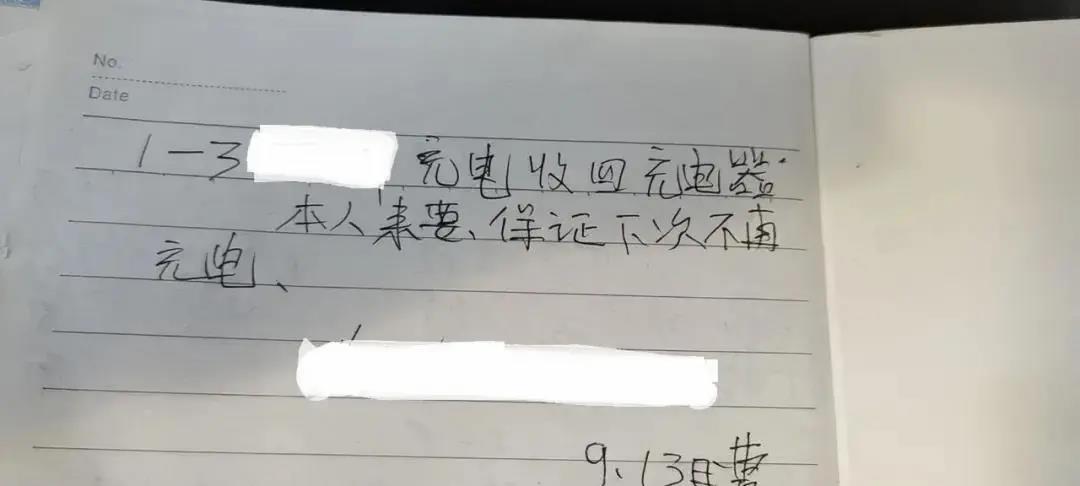 No.
Date
1-3 充电收回充电器.
本人来要、保证下次不再
充电、
9、13日